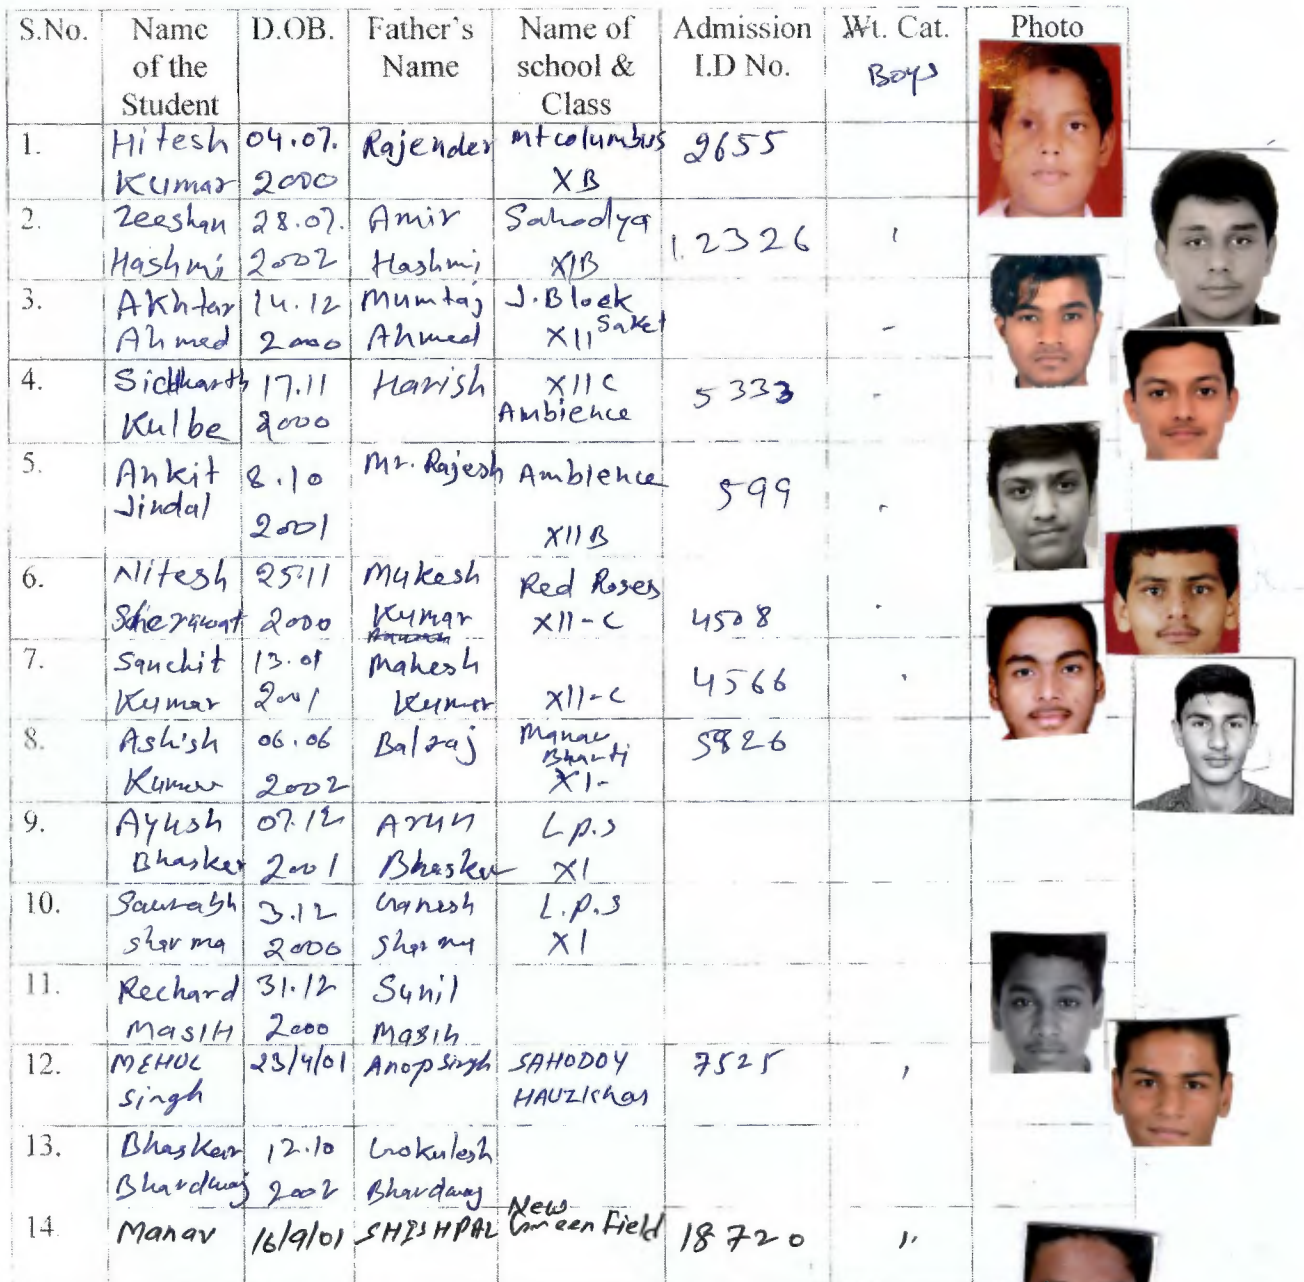 S.No. Name of the Student D.OB. Father's Name Name of school & Class Admission I.D No. Wt. Cat. Boys Photo
1. Hitesh Kumar 04.07.2000 Rajender Mt columbus XB 2655
2. Zeeshan Hashmi 28.07.2002 Amir Hashmi Sahodya XIB 12326
3. Akhtar Ahmed 14.12 2000 Mumtaj Ahmed J.Block Saket XII
4. Siddharth Kulbe 17.11 2000 Harish XII C Ambience 5333
5. Ankit Jindal 8.10 2001 Mr. Rajesh Ambience XII B 599
6. Nitesh Sherawat 25.11 2000 Mukesh Kumar Red Roses XII-C 4508
7. Sanchit Kumar 13.01 2001 Mahesh Kumar XII-C 4566
8. Ashish Kumar 06.06 2002 Balraj Manav Bharti XI- 5826
9. Ayush Bhasker 07.12 2001 Arun Bhasker L.P.S XI
10. Saurabh Sharma 3.12 2000 Ganesh Sharma L.P.S XI
11. Rechard MASIH 31.12 2000 Sunil Masih
12. MEHUL Singh 23/4/01 Anop Singh SAHODOY HAUZ Khas 7525
13. Bhasker Bhardwaj 12.10 2002 Gokulesh Bhardwaj
14. Manav 16/9/01 SHISHPAL New Green Field 18720